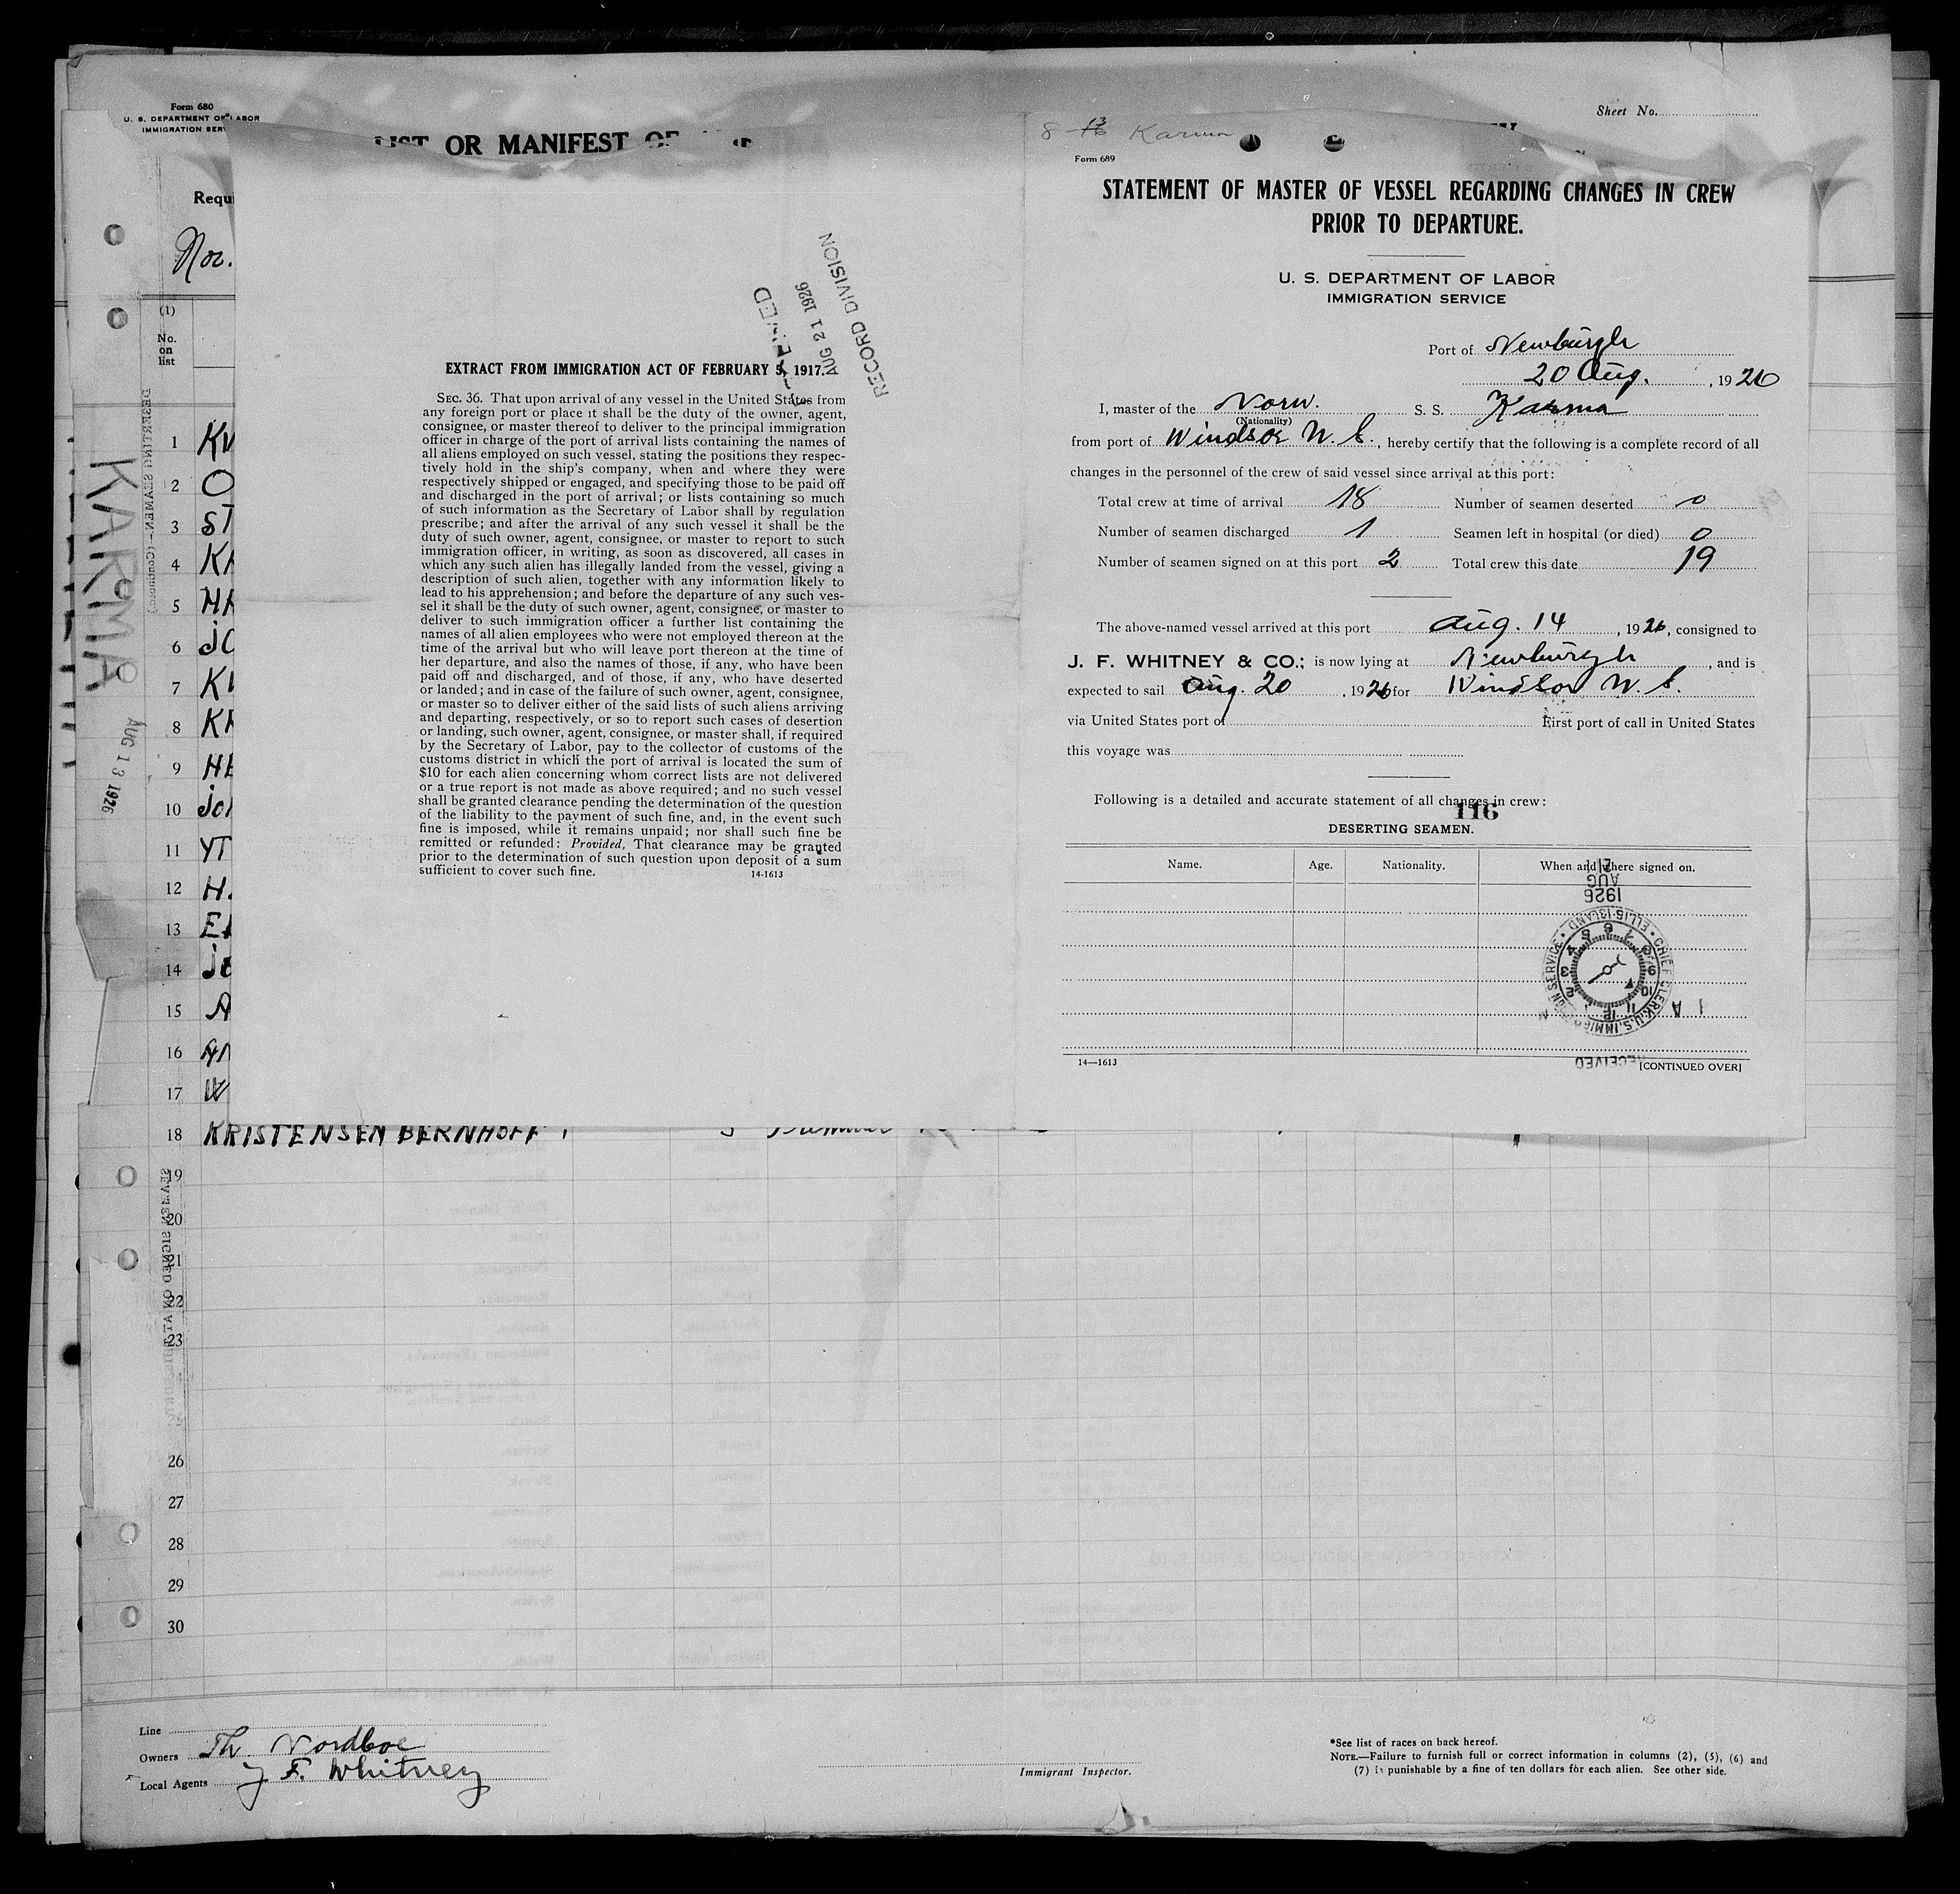 Form 680
U. S. DEPARTMENT OF LABOR
IMMIGRATION SER
LIST OR MANIFEST OF
Sheet No.
Requ
Nor.
(1)
No.
on
list
KARMA
AUG 13 1926
1 KV
2 O
3 ST
4
5
6 JO
7
8
9
10
11 YT
12 H.
13
14
15 A
16
17 W
18 KRISTENSEN BERNHOFF
19
20
21
22
23
25
26
27
28
29
30
Line
Owners Th Nordboe
Local Agents J F. Whitney
Immigrant Inspector.
*See list of races on back hereof.
NOTE.—Failure to furnish full or correct information in columns (2), (5), (6) and
(7) is punishable by a fine of ten dollars for each alien. See other side.
AUG 21 1926
RECORD DIVISION
EXTRACT FROM IMMIGRATION ACT OF FEBRUARY 5, 1917.
SEC. 36. That upon arrival of any vessel in the United States from
any foreign port or place it shall be the duty of the owner, agent,
consignee, or master thereof to deliver to the principal immigration
officer in charge of the port of arrival lists containing the names of
all aliens employed on such vessel, stating the positions they respec-
tively hold in the ship's company, when and where they were
respectively shipped or engaged, and specifying those to be paid off
and discharged in the port of arrival; or lists containing so much
of such information as the Secretary of Labor shall by regulation
prescribe; and after the arrival of any such vessel it shall be the
duty of such owner, agent, consignee, or master to report to such
immigration officer, in writing, as soon as discovered, all cases in
which any such alien has illegally landed from the vessel, giving a
description of such alien, together with any information likely to
lead to his apprehension; and before the departure of any such ves-
sel it shall be the duty of such owner, agent, consignee, or master to
deliver to such immigration officer a further list containing the
names of all alien employees who were not employed thereon at the
time of the arrival but who will leave port thereon at the time of
her departure, and also the names of those, if any, who have been
paid off and discharged, and of those, if any, who have deserted
or landed; and in case of the failure of such owner, agent, consignee,
or master so to deliver either of the said lists of such aliens arriving
and departing, respectively, or so to report such cases of desertion
or landing, such owner, agent, consignee, or master shall, if required
by the Secretary of Labor, pay to the collector of customs of the
customs district in which the port of arrival is located the sum of
$10 for each alien concerning whom correct lists are not delivered
or a true report is not made as above required; and no such vessel
shall be granted clearance pending the determination of the question
of the liability to the payment of such fine, and, in the event such
fine is imposed, while it remains unpaid; nor shall such fine be
remitted or refunded: Provided, That clearance may be granted
prior to the determination of such question upon deposit of a sum
sufficient to cover such fine.
14-1613
8-13 Karma
Form 689
STATEMENT OF MASTER OF VESSEL REGARDING CHANGES IN CREW
PRIOR TO DEPARTURE.
U. S. DEPARTMENT OF LABOR
IMMIGRATION SERVICE
Port of Newburgh
20 Aug., 1926
I, master of the Norw. S. S. Karma
(Nationality)
from port of Windsor N. S., hereby certify that the following is a complete record of all
changes in the personnel of the crew of said vessel since arrival at this port:
Total crew at time of arrival 18 Number of seamen deserted 0
Number of seamen discharged 1 Seamen left in hospital (or died) 0
Number of seamen signed on at this port 2 Total crew this date 19
The above-named vessel arrived at this port Aug. 14, 1926, consigned to
J. F. WHITNEY & CO.; is now lying at Newburgh, and is
expected to sail Aug. 20, 1926 for Windsor N. S.
via United States port of First port of call in United States
this voyage was
Following is a detailed and accurate statement of all changes in crew:
116
DESERTING SEAMEN.
Name. Age. Nationality. When and where signed on.
1926
AUG
21
CHIEF CLERK U.S. IMMIGRATION SERVICE • ELLIS ISLAND •
RECEIVED
14—1613
[CONTINUED OVER]